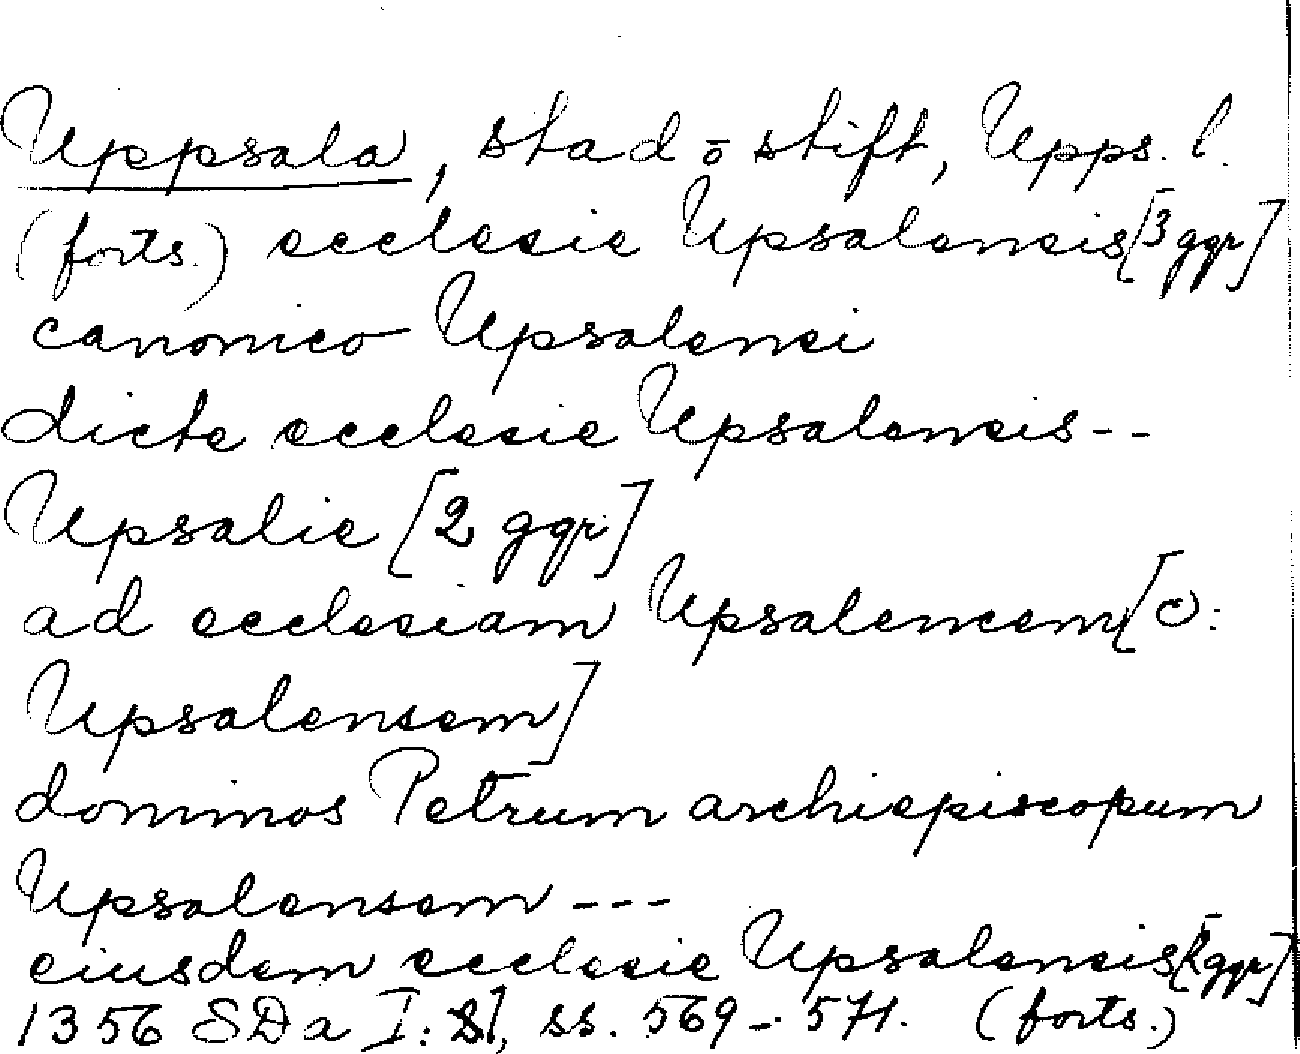 Uppsala, stad o stift, Upps. l.
(forts.) ecclesie Upsalensis [3 ggr]
canonico Upsalensi
dicte ecclesie Upsalensis --
Upsalie [2 ggr]
ad ecclesiam Upsalencem [ɔ:
Upsalensem]
dominos Petrum archiepiscopum
Upsalensem ---
eiusdem ecclesie Upsalensis [ggr]
1356 SDa I: , ss. 569-571. (forts.)